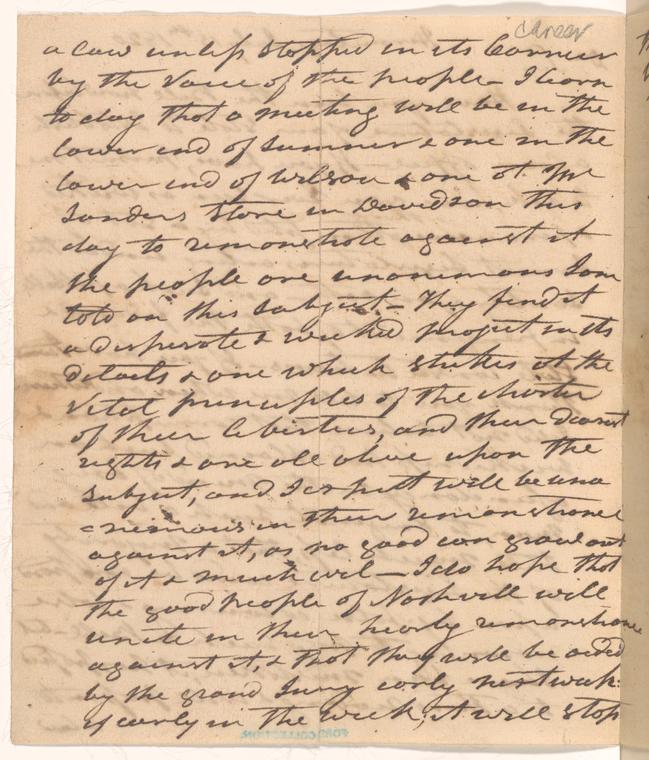 career
a law unless stopped in its Carreer
by the Voice of the people — I learn
to day that a meeting will be in the
lower end of Sumner & one in the
lower end of Wilson & one at Mr
Sanders Store in Davidson this
day to remonstrate against it
the people are unanimous I am
told on this subject — They find it
a desperate & wicked project in its
details & one which strikes at the
vital principles of the charter
of their liberties, and their dearest
rights & are all alive upon the
subject, and I expect will be una
=nimous in their remonstrance
against it, as no good can grow out
of it & much evil — I do hope that
the good people of Nashvill will
unite in their hearty remonstrance
against it, & that they will be aided
by the grand Jury early next week.
if early in the week, it will stop
FORD COLLECTION.